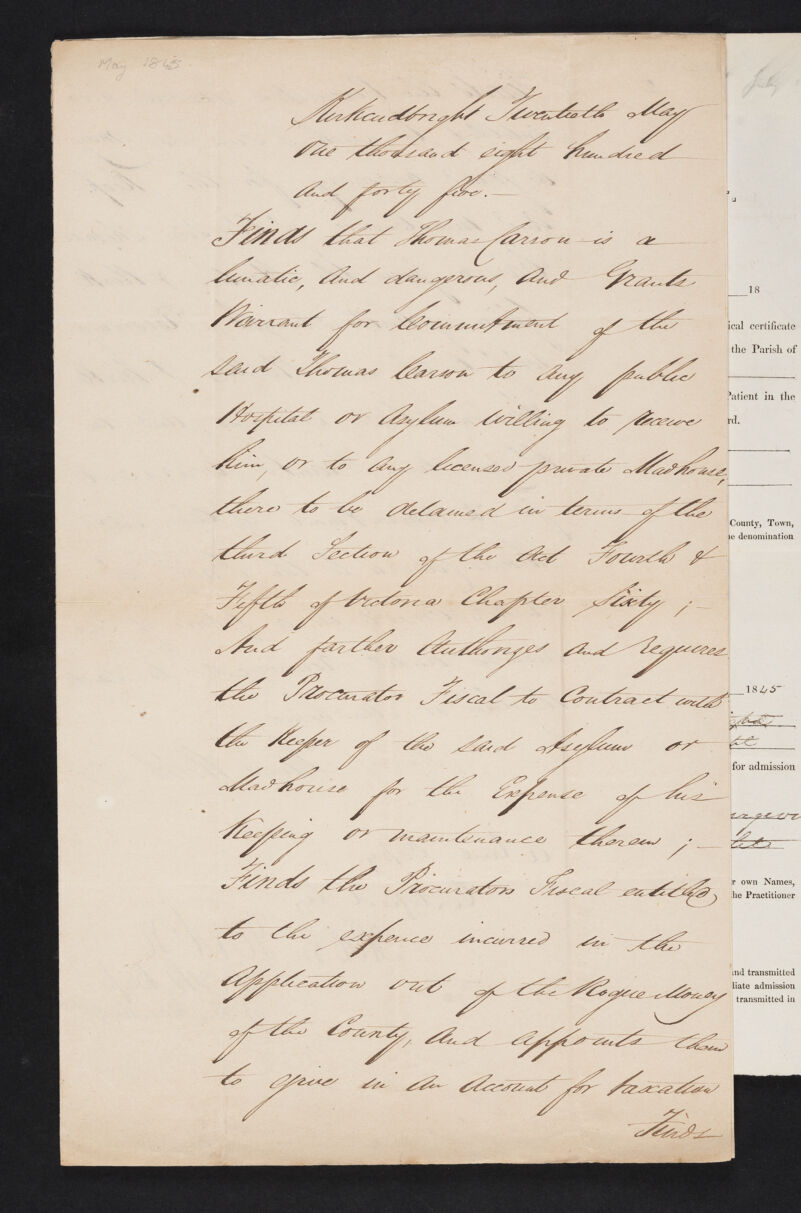 May 1845.
Kirkcudbright Twentieth May
One thousand eight hundred
and forty five. —
Finds that Thomas Carson is a
lunatic, and dangerous, and Grants
Warrant for Commitment of the
said Thomas Carson to any public
Hospital or Asylum willing to receive
him, or to any licensed private Madhouse,
there to be detained in terms of the
third Section of the Act Fourth &
Fifth of Victoria Chapter Sixty ; —
And farther Authorizes and requires
the Procurator Fiscal to Contract with
the Keeper of the said Asylum or
Madhouse for the Expense of his
Keeping or maintenance therein ; —
Finds the Procurators Fiscal entitled
to the expence incurred in the
Application out of the Rogue Money
of the County, and appoints them
to give in an Account for taxation
Finds
July
18
ical certificate
the Parish of
Patient in the
rd.
County, Town,
he denomination
1845
for admission
r own Names,
he Practitioner
and transmitted
diate admission
transmitted in